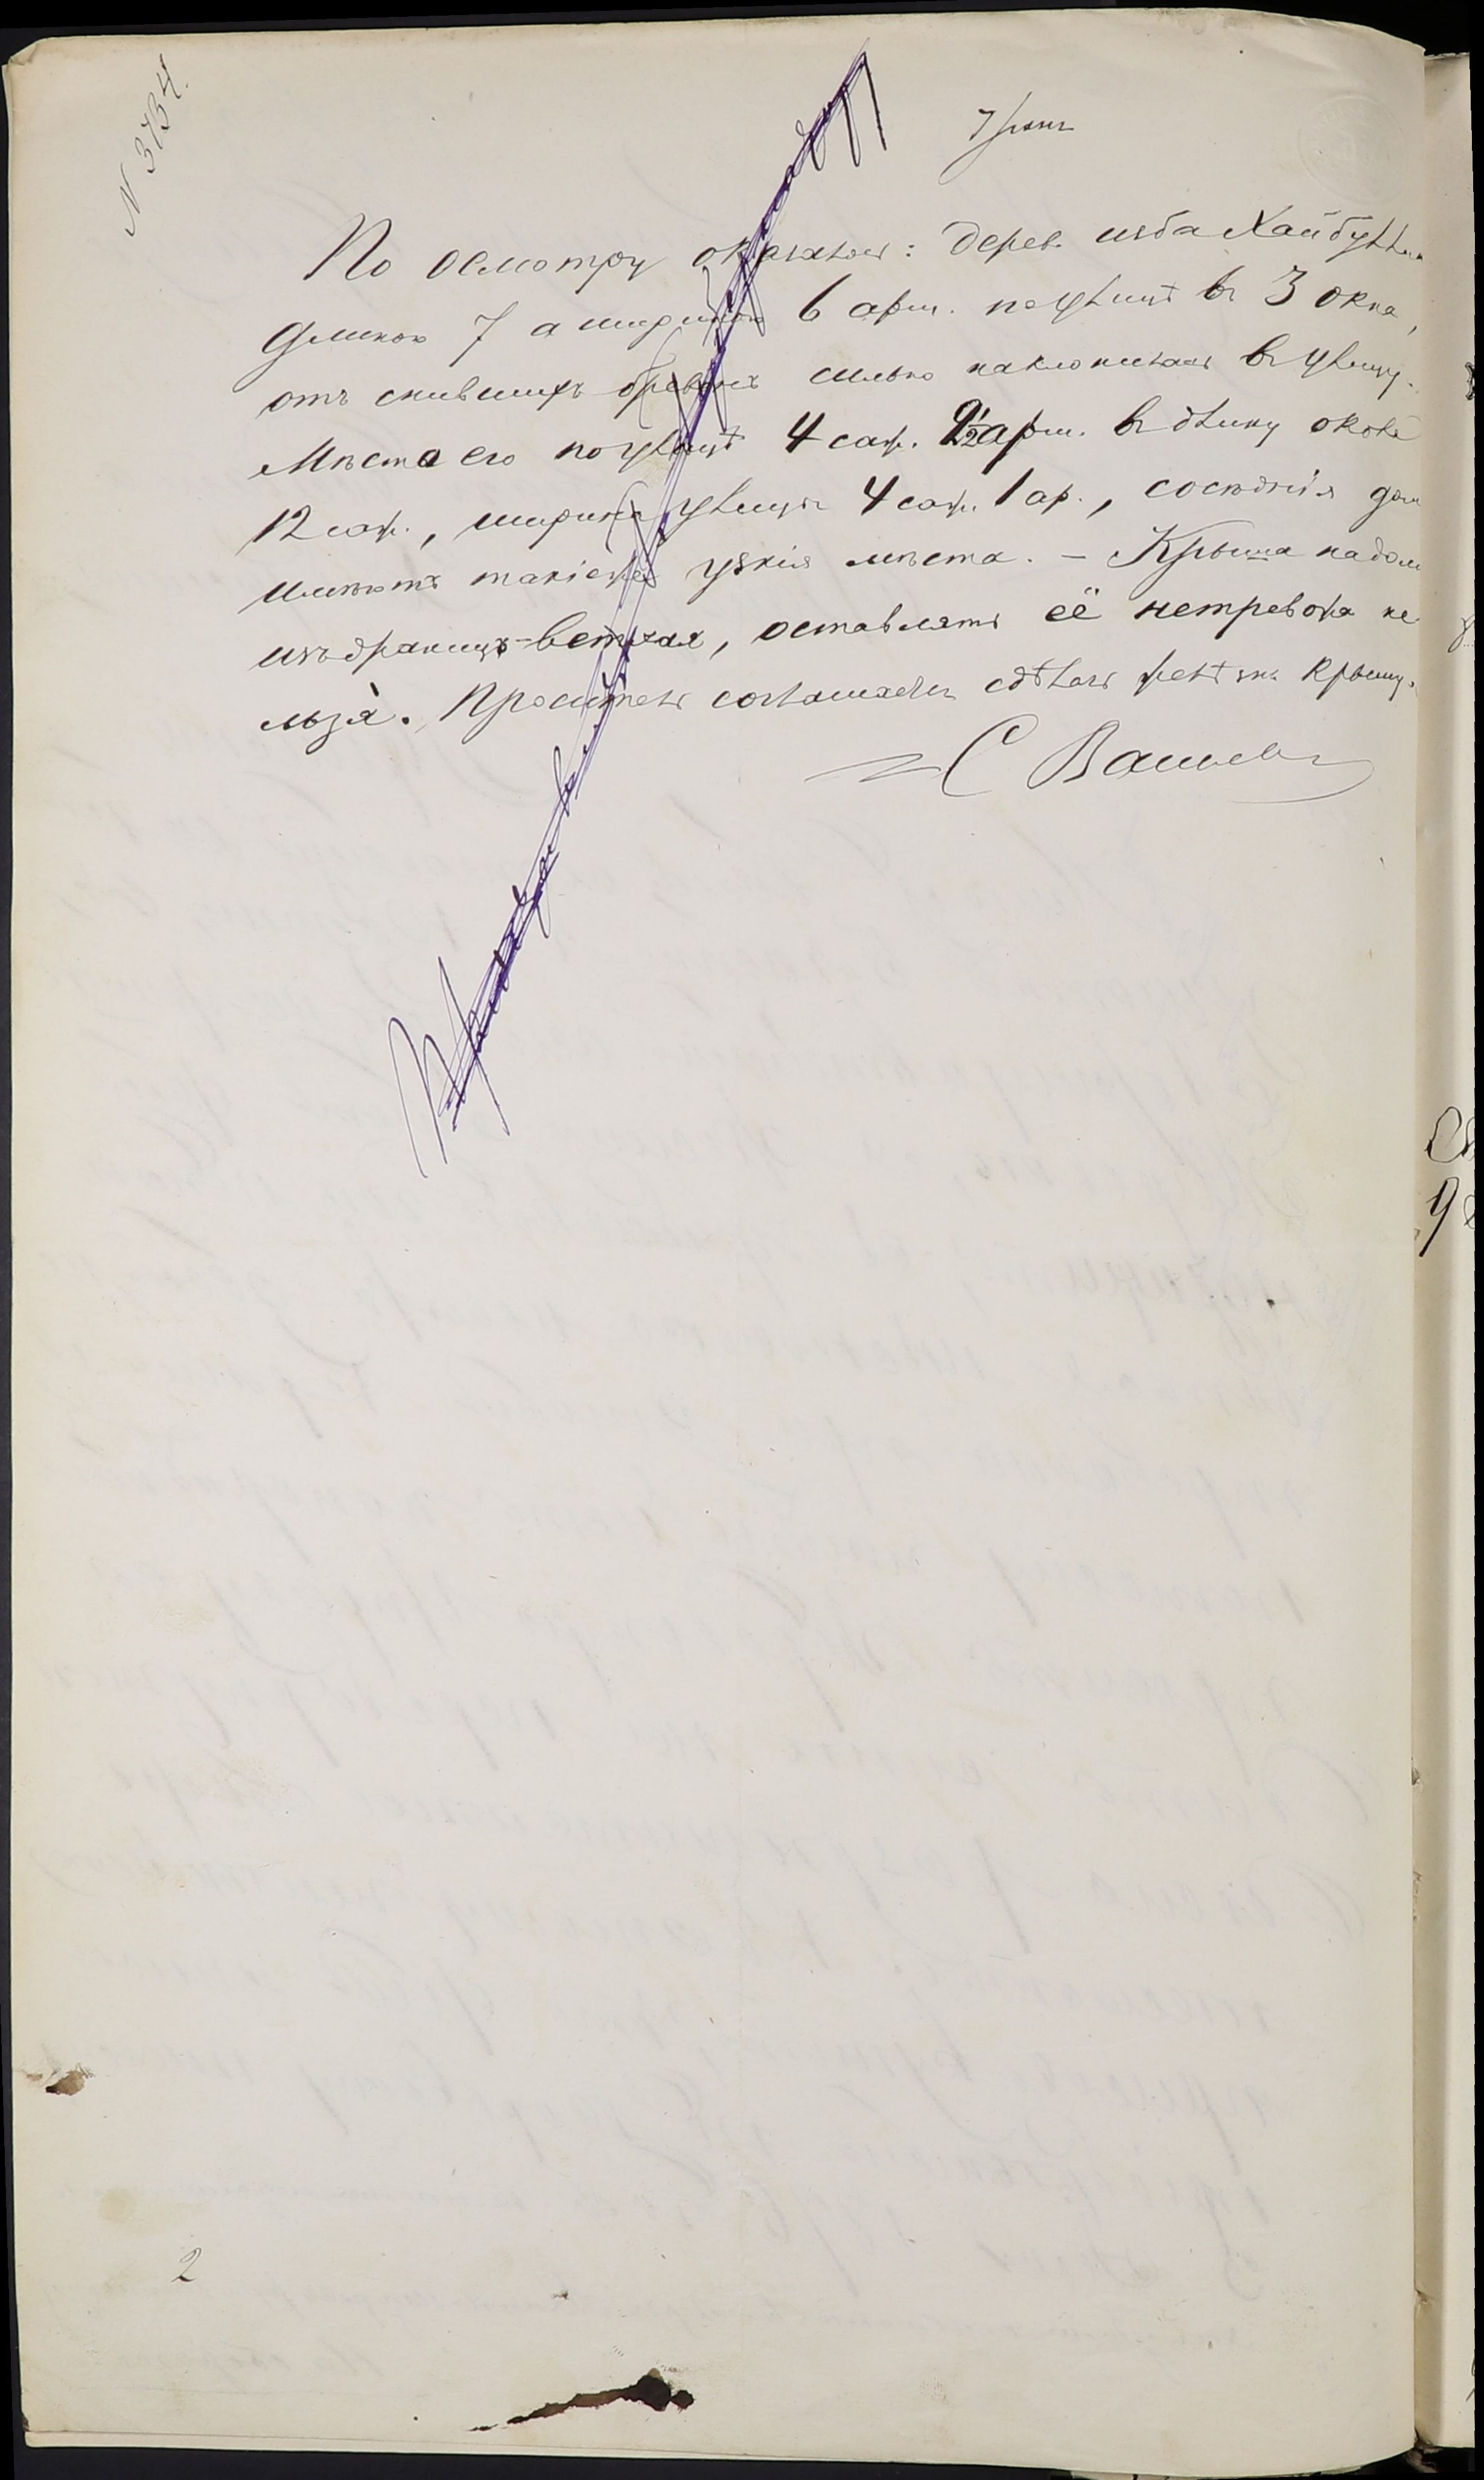 N 3734.
7 июня
По осмотру оказалось: дерев. изба Хайбулли
длиною 7 а шириною 6 арш. по улицѣ въ 3 окна,
отъ снившихъ бревенъ сильно наклонилась въ улицу.
Мѣсто его по улицѣ 4 саж. 2½ арш. въ длину около
12 саж., ширина улицы 4 саж. 1 ар., сосѣднія дом
имѣютъ такіеже узкія мѣста. — Крыша на дом
изъ драницъ - ветхая, оставлять её нетревожа не
льзя. Проситель соглашается сдѣлать желѣзн. крышу.
С
2